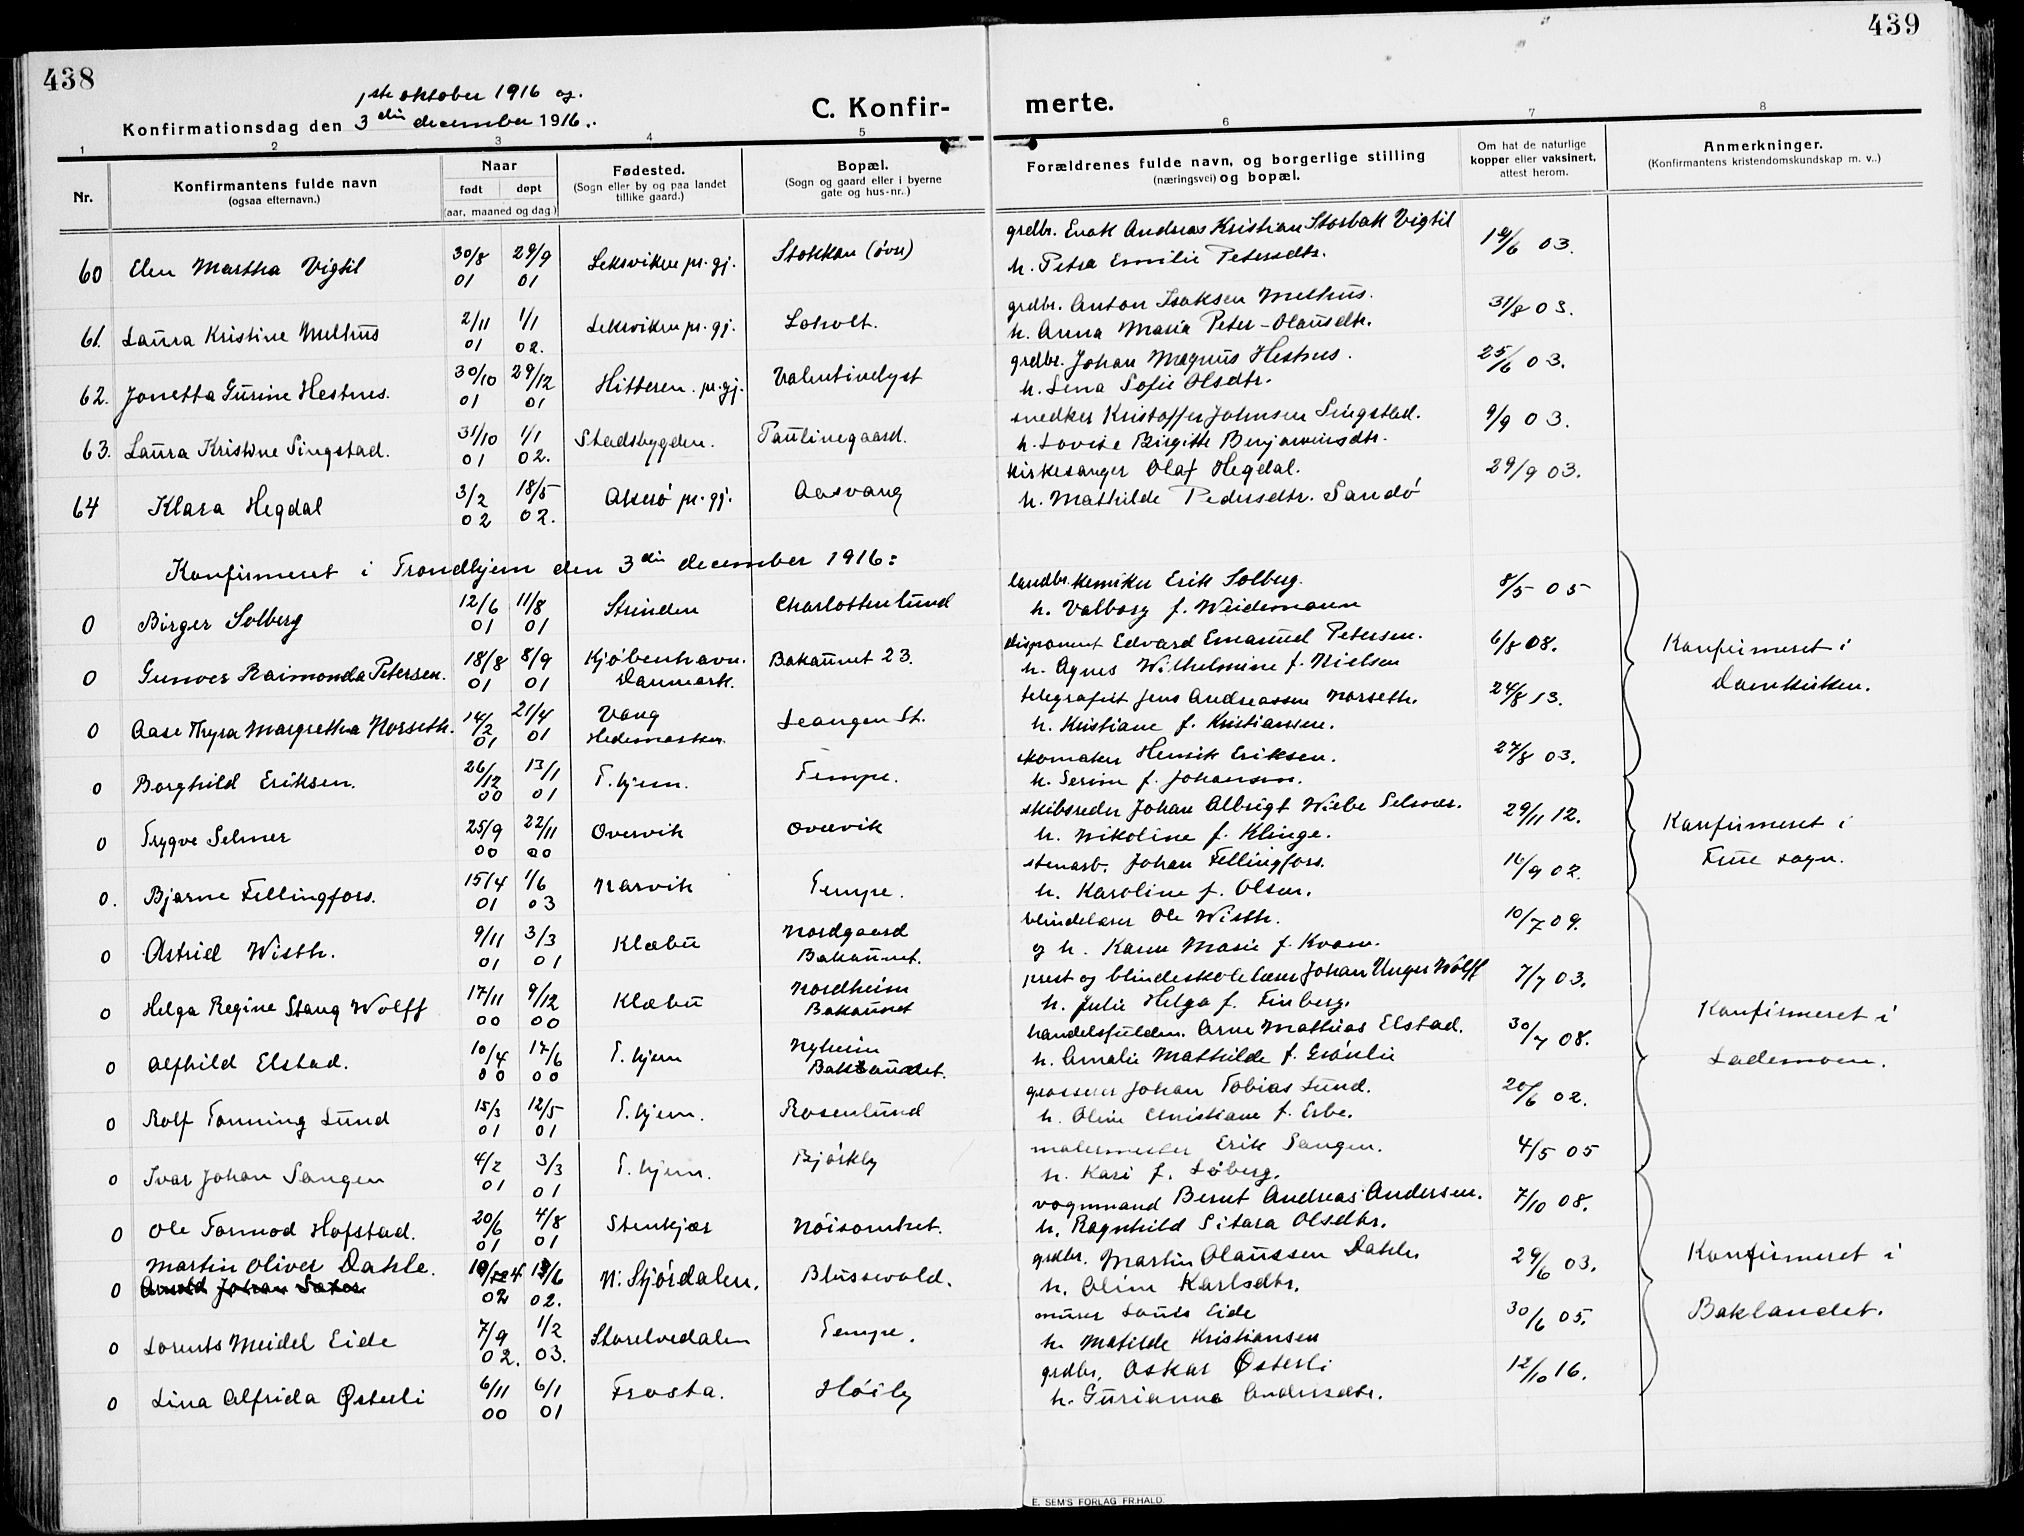 438
439
1ste oktober 1916 og.
Konfirmationsdag den 3die december 1916.
C. Konfir-
merte.
1 2 3 4 5 6 7 8
Nr.
Konfirmantens fulde navn
(ogsaa efternavn.)
Naar
født døpt
(aar, maaned og dag)
Fødested.
(Sogn eller by og paa landet
tillike gaard.)
Bopæl.
(Sogn og gaard eller i byerne
gate og hus-nr.)
Forældrenes fulde navn, og borgerlige stilling
(næringsvei) og bopæl.
Om hat de naturlige
kopper eller vaksinert,
attest herom.
Anmerkninger.
(Konfirmantens kristendomskundskap m. v..)
60 Elen Martha Vigtil 30/8 01 29/9 01 Leksviken pr. gj. Stokkan (övre)
grdbr. Enok Andreas Kristian Storbak Vigtil 03.
h. Petra Emilie Petersdtr.
61. Laura Kristine Melhus 2/11 01 1/1 02. Leksviken pr. gj. Loholt.
grdbr. Anton Isaksen Melhus. 31/8 03.
h. Anna Maria Peter-Olausdtr.
62. Jonetta Gurine Hestnes. 30/10 01 29/12 01 Hitteren. pr. gj. Valentinelyst
grdbr. Johan Magnus Hestnes. 25/6 03.
h. Lena Sofie Olsdtr.
63. Laura Kristine Singstad. 31/10 01 1/1 02. Stadsbygden. Paulinegaard.
snedker Kristoffer Johnsen Singstad. 9/9 03.
h. Lovise Birgitte Benjaminsdtr.
64 Klara Hegdal 3/2 02 18/5 02. pr. gj. Aasvang
kirkesanger Olaf Hegdal. 29/9 03.
h. Mathilde Pedersdtr. Sandö
Konfirmeret i Trondhjem den 3die december 1916:
0 Birger Solberg 12/6 01 11/8 01 Strinden Charlottenlund
landbr. kemiker Erik Solberg. 8/5 05
h. Valborg f. Weidemann
0 Gunvor Raimonda Petersen. 18/8 01 8/9 01 Kjöbenhavn. Danmark. Bakaunet 23.
disponent Edvard Emanuel Petersen. 6/8 08.
h. Agnes Wilhelmine f. Nielsen
0 Aase Thyra Margretha Norseth. 14/2 01 21/4 01 Vang Hedemarken. Leangen St.
telegrafist Jens Andreassen Norseth. 24/8 13.
h. Kristiane f. Kristiansen.
Konfirmeret i
Domkirken.
0 Borghild Eriksen. 26/12 00 13/1 01 T.hjem. Tempe.
skomaker Henrik Eriksen. 27/8 03.
h. Serine f. Johansen.
0 Trygve Selmer 25/9 00 22/11 00 Overvik Overvik
skibsreder Johan Albrigt Wiebe Selmer. 29/11 12.
h. Nikoline f. Klinge.
0. Bjarne Fellingfors. 15/4 01 1/6 03 Narvik Tempe.
stenarb. Johan Fellingfors. 16/9 02.
h. Karoline f. Olsen.
Konfirmeret i
Frue sogn.
0 Astrid Wisth. 9/11 01 3/3 01 Klæbu Nordgaard Bakaunet.
blindelærer Ole Wisth. 10/7 09.
og h. Karen Marie f. Kvam.
0 Helga Regine Stang Wolff 17/11 00 9/12 00 Klæbu Nordheim Bakaunet
prest og blindeskolelærer Johan Unger Wolff 7/7 03.
h. Julie Helga f. Finberg.
0 Alfhild Elstad. 10/4 00 17/6 00 T.hjem Nyheim Bakaunet.
handelsfuldm. Arne Mathias Elstad. 30/7 08.
h. Amalie Mathilde f. Grönlie
0 Rolf Tonning Lund 15/3 01 12/5 01 T.hjem. Rosenlund
grosserer Johan Tobias Lund. 20/6 02.
h. Oline Christiane f. Erbe.
Konfirmeret i
Lademoen.
0 Ivar Johan Sangen 4/2 01 3/3 01 T.hjem. Björkly
malermester Erik Sangen. 4/5 05
h. Kari f. Löberg.
0 Ole Tormod Hofstad. 20/6 01 4/8 01 Stenkjær Nöisomhet.
vognmand Bernt Andreas Andersen. 7/10 08.
h. Ragnhild Sitara Olsdtr.
0 Martin Oliver Dahle. 02 02. N. Stjördalen. Blussevold.
grdbr. Martin Olaussen Dahle 29/6 03.
h. Oline Karlsdtr.
0 Lorents Meidel Eide 7/9 02. 1/2 03. Storelvedalen Tempe.
murer Eide 30/6 05.
h. Matilde Kristiansen
0 Lina Alfrida Østerli 6/11 00 6/1 01 Frosta. Höiby
grdbr. Oskar Østerli 12/10 16.
h. Gurianna Andersdtr.
Konfirmeret i
Baklandet.
E. SEM'S FORLAG FR.HALD.